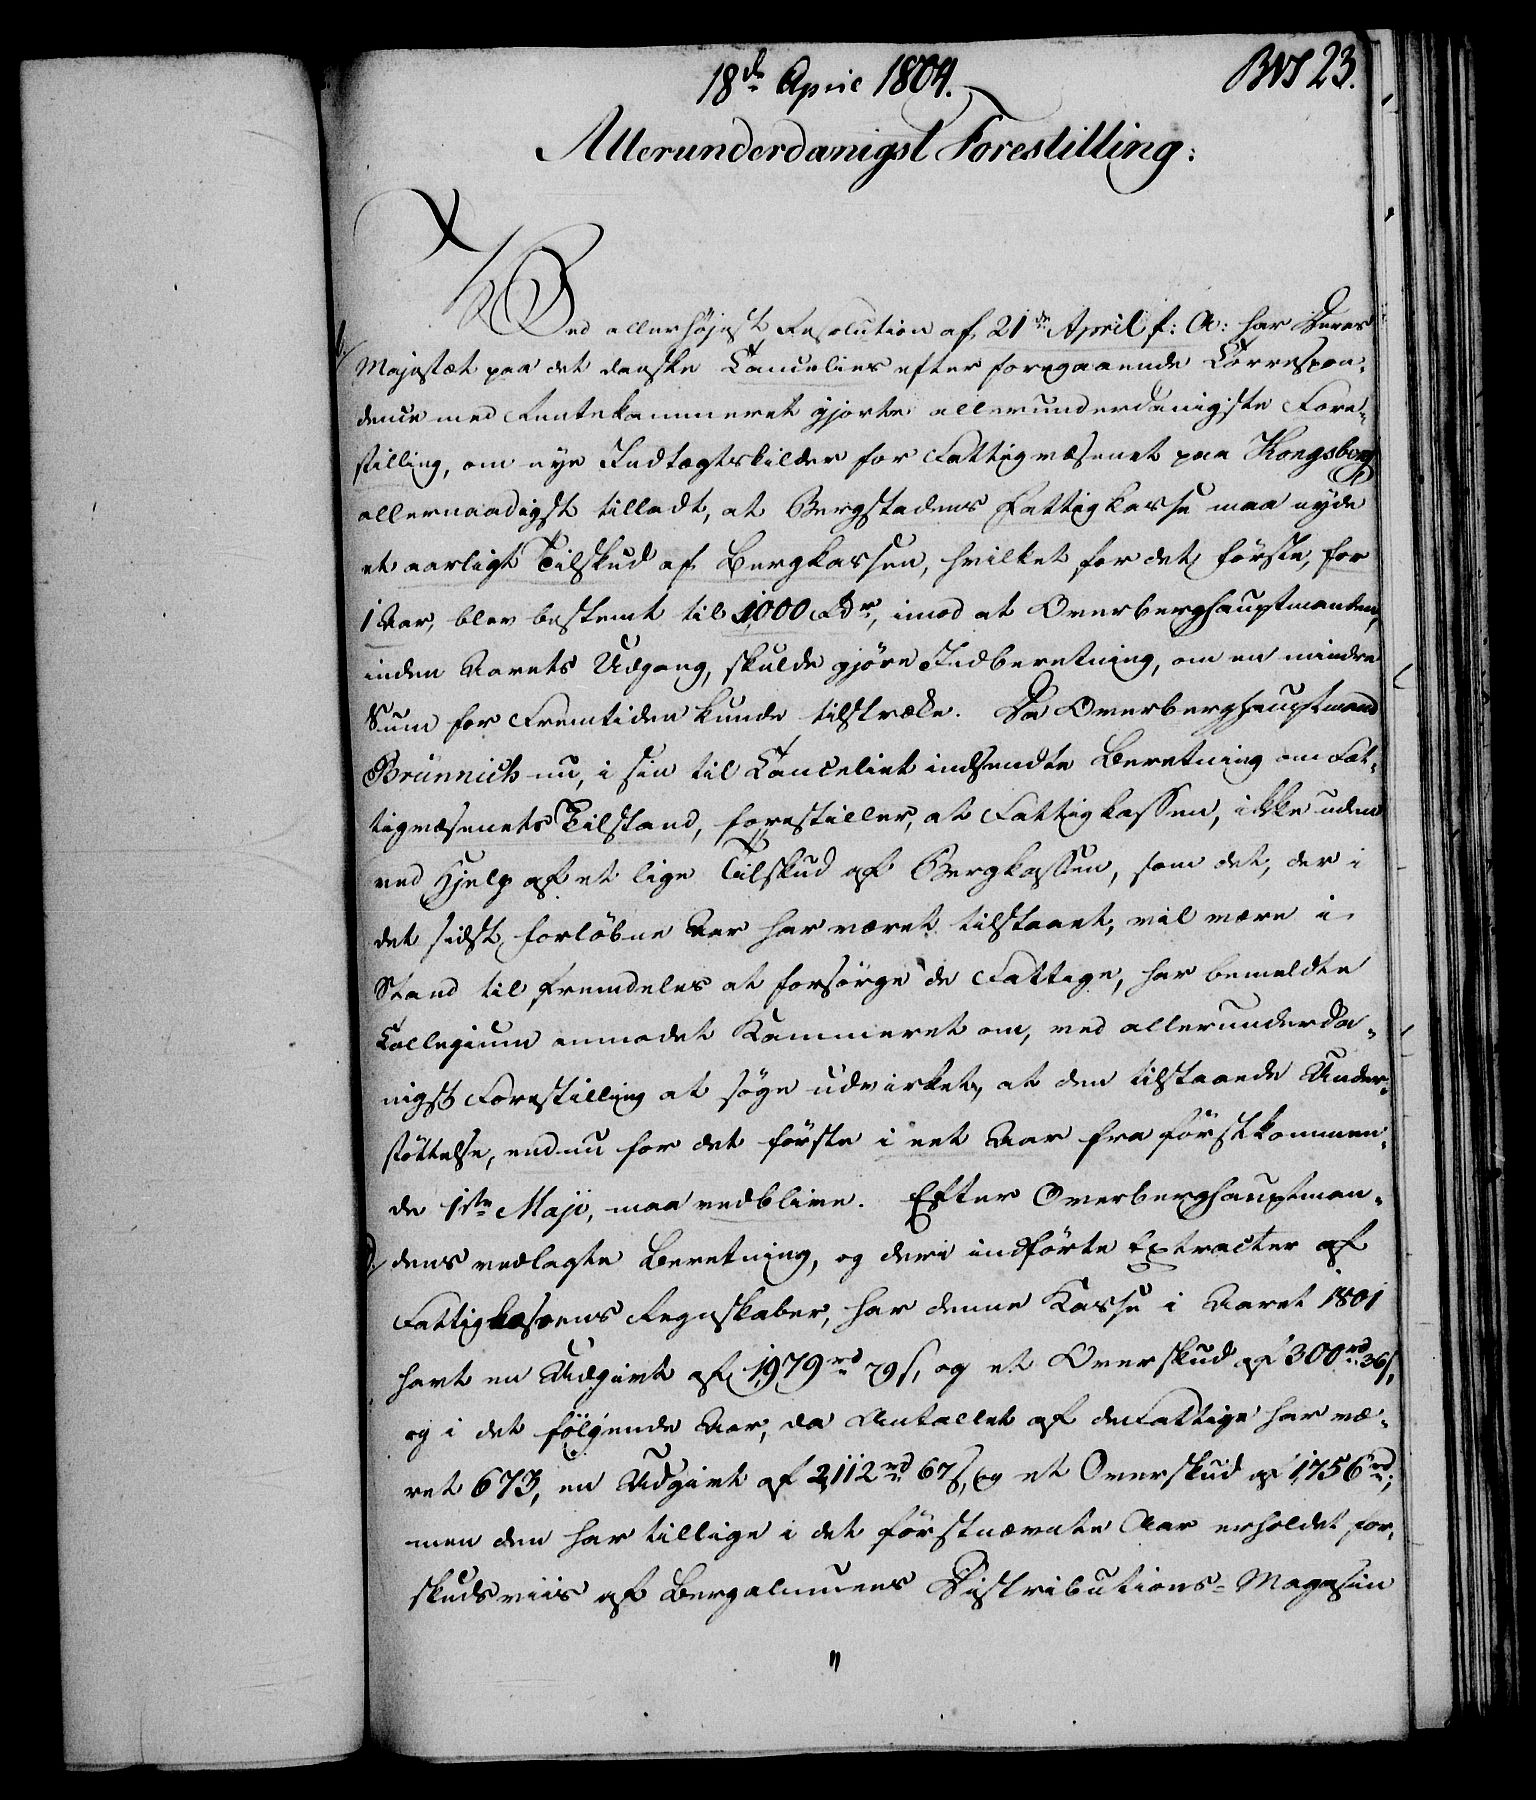 18de April 1804.
BVS 23.
Allerunderdanigst Forestilling:
Ved allerhøjest Resolution af 21de April f: A: har Deres
Majestæt paa det danske Cancelies efter foregaaende Correspon-
dence med Rentekammeret gjorte allerunderdanigste Fore-
stilling, om nye Indtægtskilder for Fattigvæsenet paa Kongsberg
allernaadigst tilladt, at Bergstadens Fattigkasse maa nyde
et aarligt Tilskud af Bergkassen, hvilket for det første, for
1 Aar, blev bestemt til 1,000 Rdr, imod at Overberghauptmanden,
inden Aarets Udgang, skulde gjøre Indberetning, om en mindre
Sum for Fremtiden kunde tilstræke. Da Overberghauptmand
Brünnich nu, i sin til Canceliet indsendte Beretning om Fat-
tigvæsenets Tilstand, forestiller, at Fattigkassen, ikke uden
ved Hjelp af et lige Tilskud af Bergkassen, som det, der i
det sidst forløbne Aar har været tilstaaet, vil være i
Stand til fremdeles at forsørge de Fattige, har bemeldte
Collegium anmodet Kammeret om, ved allerunderda-
nigst Forestilling at søge udvirket, at den tilstaaede Under-
støttelse, endnu for det første i eet Aar fra førstkommen-
de 1ste Maji, maa vedblive. Efter Overberghauptman-
dens vedlagte Beretning, og deri indførte Extracter af
Fattigkassens Regnskaber, har denne Kasse i Aaret 1801
havt en Udgivt af 1,979 rd 79 s, og et Overskud af 300 rd 36 s,
og i det følgende Aar, da Antallet af de Fattige har væ-
ret 673, en Udgivt af 2,112 rd 67 s, og et Overskud af 1,756 rd;
men den har tillige i det førstnævnte Aar erholdet for-
skudsviis af Bergalmuens Distributions-Magasin
"